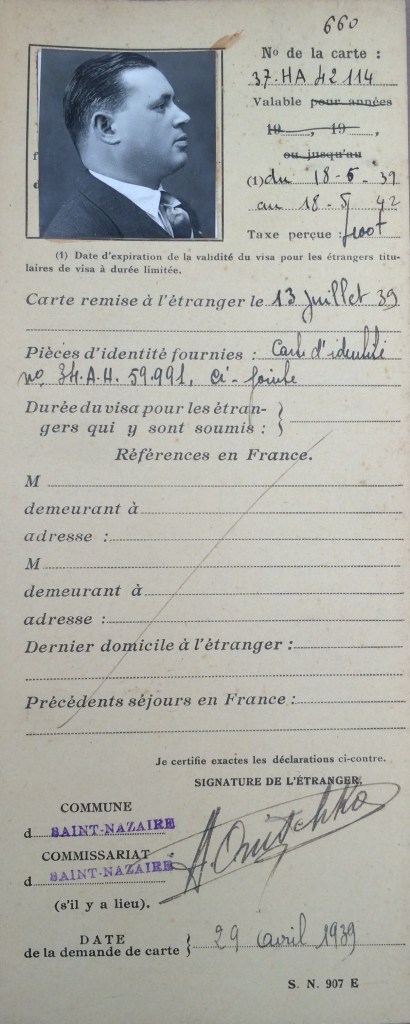 660
No de la carte :
37.HA 42114
Valable pour années
19 , 19 ,
ou jusqu'au
(1) du 18-5-39
au 18-5 42
Taxe perçue :
(1) Date d'expiration de la validité du visa pour les étrangers titu-
laires de visa à durée limitée.
Carte remise à l'étranger le 13 juillet 39
Pièces d'identité fournies : Carte d'identité
no 34.A.H. 59.991, ci-jointe
Durée du visa pour les étran-
gers qui y sont soumis :
Références en France.
M
demeurant à
adresse :
M
demeurant à
adresse :
Dernier domicile à l'étranger :
Précédents séjours en France :
Je certifie exactes les déclarations ci-contre.
SIGNATURE DE L'ÉTRANGER,
COMMUNE
d SAINT-NAZAIRE
COMMISSARIAT
d SAINT-NAZAIRE
(s'il y a lieu).
DATE
de la demande de carte 29 avril 1939
S. N. 907 E